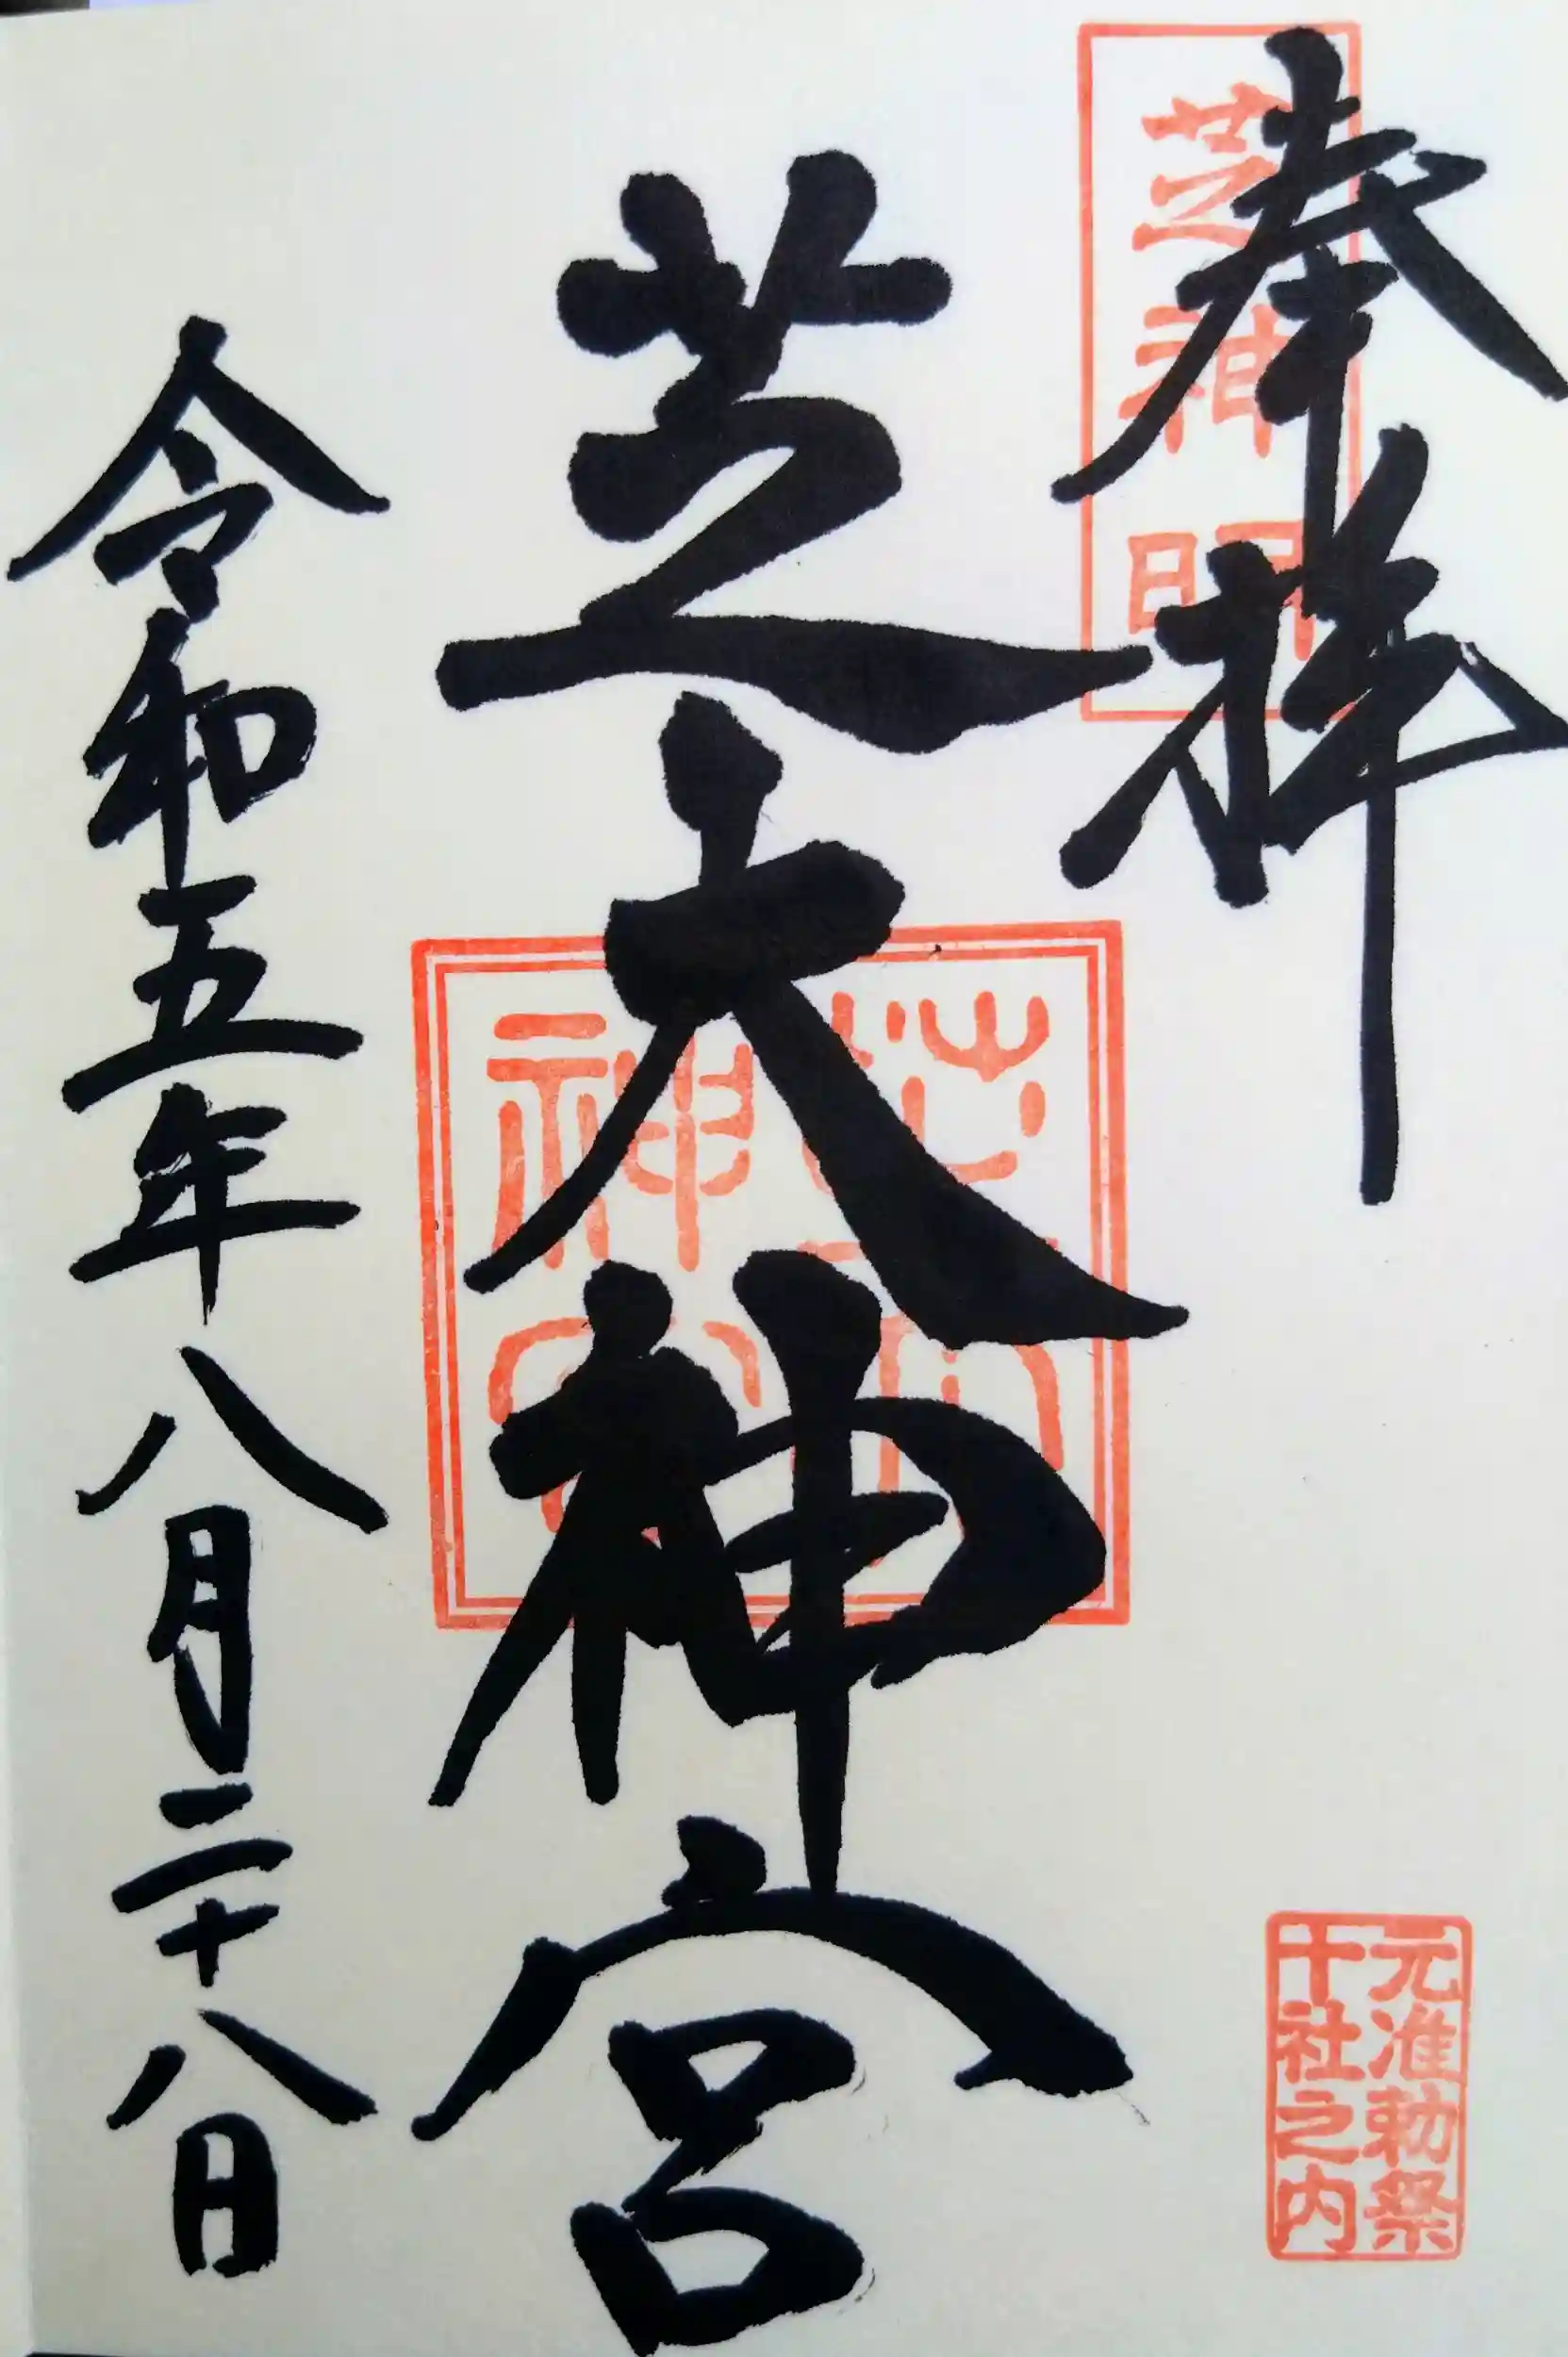 奉拝
芝神明
芝大神宮
芝大神宮
令和五年八月二十八日
元准勅祭
十社之内